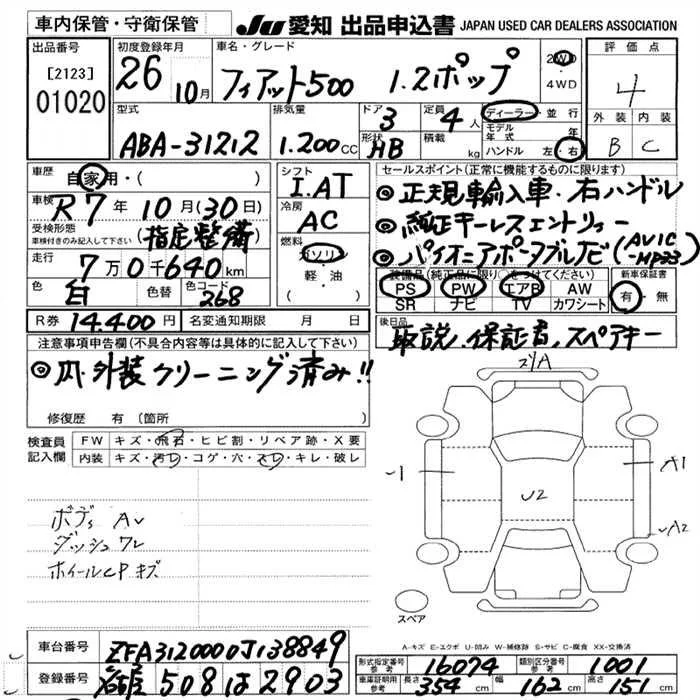 車内保管・守衛保管
JU 愛知 出品申込書 JAPAN USED CAR DEALERS ASSOCIATION
出品番号
[2123]
01020
初度登録年月
26 10月
車名・グレード
フィアット500 1.2ポップ
2WD
・
4WD
評価点
4
外装 内装
B C
型式
ABA-31212
排気量
1.200cc
ドア
3
形状
HB
定員
4人
積載
kg
ディーラー・並行
モデル年式 年
ハンドル 左・右
車歴 自家用・( )
車検 R7年10月(30日)
受検形態
車検付きのみ記入して下さい
(指定整備)
走行 7万0千640km
色 白 色替 色コード 268
R券 14.400円 名変通知期限 月 日
シフト
I.AT
冷房
AC
燃料
ガソリン
軽・油
( )
セールスポイント(正常に機能するものに限ります)
◎正規輸入車・右ハンドル
◎純正キーレスエントリー
◎パイオニアポータブルナビ(AVIC-MP33)
装備品(純正品に限り○をつけてください)
PS PW エアB AW
SR ナビ TV カワシート
新車保証書
有・無
後日品
取説.保証書.スペアキー
注意事項申告欄(不具合内容等は具体的に記入して下さい)
◎内.外装クリーニング済み!!
修復歴 有(箇所 )
検査員
記入欄
FW キズ・飛石・ヒビ割・リペア跡・X要
内装 キズ・汚レ・コゲ・穴・スレ・キレ・破レ
ボディ AV
ダッシュワレ
ホイールCPキズ
ズリA
-1
A1
U2
A2
スペア
A-キズ E-エクボ U-凹み W-補修跡 S-サビ C-腐食 XX-交換済
車台番号 ZFA3120000J138849
登録番号 508は2903
形式指定番号
参考
16074
類別区分番号
参考
1001
車庫証明用
参考
長さ 354cm 幅 162cm 高さ 151cm